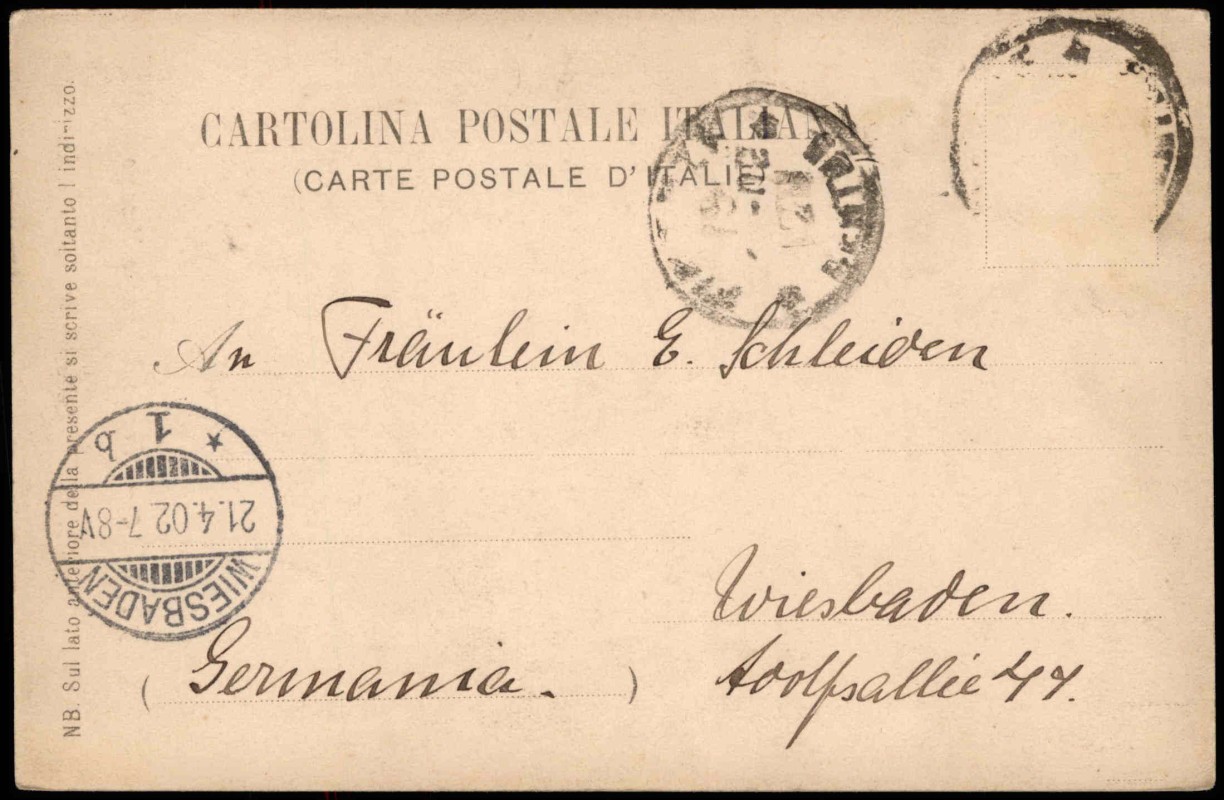 CARTOLINA POSTALE ITALIANA
(CARTE POSTALE D'ITALIE)
NB. Sul lato anteriore della presente si scrive soltanto l indirizzo.
An Fräulein E. Schleiden
1 b
21.4.02 7-8V
WIESBADEN
Wiesbaden.
Adolfsallee 47.
(Germania.)